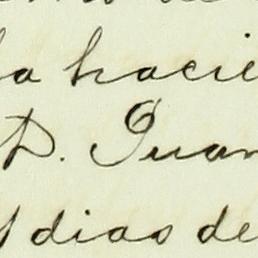 la hacie
D. Juan
dias de